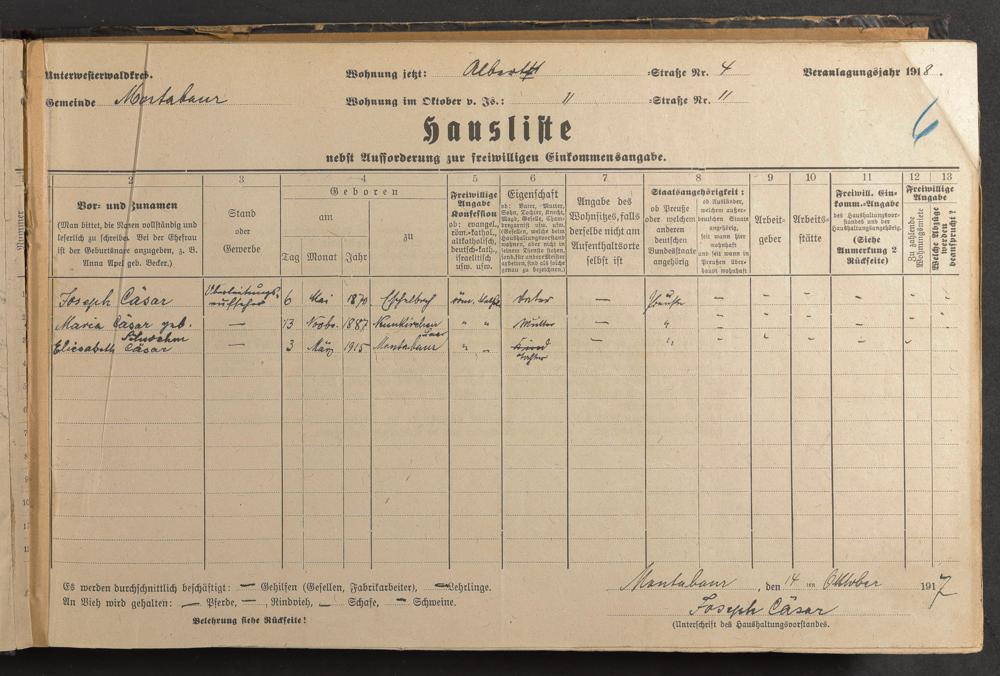 Unterwesterwaldkreis. Wohnung jetzt: Albert =Straße Nr. 4 Veranlagungsjahr 1918.
Gemeinde Montabaur Wohnung im Oktober v. Js.: " =Straße Nr. "
6
Hausliste
nebst Aufforderung zur freiwilligen Einkommensangabe.
2 3 4 5 6 7 8 9 10 11 12 13
Nummer
Vor- und Zunamen
(Man bittet, die Namen vollständig und
leserlich zu schreiben. Bei der Ehefrau
ist der Geburtsname anzugeben, z. B.
Anna Apel geb. Becker.)
Stand
oder
Gewerbe
Geboren
am zu
Tag Monat Jahr
Freiwillige
Angabe
Konfession
ob: evangel.,
röm.-kathol.,
altkatholisch,
deutsch-kath.,
israelitisch
usw. usw.
Eigenschaft
ob: Vater, Mutter,
Sohn, Tochter, Knecht,
Magd, Geselle, Cham-
bregarnist usw. usw.
Angabe des
Wohnsitzes, falls
derselbe nicht am
Aufenthaltsorte
selbst ist
Staatsangehörigkeit:
ob Preuße
oder welchem
anderen
deutschen
Bundesstaate
angehörig
ob Ausländer,
welchem außer-
deutschen Staate
angehörig,
seit wann hier
wohnhaft
und seit wann in
Preußen über-
haupt wohnhaft
Arbeit-
geber
Arbeits-
stätte
Freiwill. Ein-
komm.-Angabe
des Haushaltungsvor-
standes und der
Haushaltungsangehörig.
(Siehe
Anmerkung 2
Rückseite)
Freiwillige
Angabe
Zu zahlende
Wohnungsmiete
Welche Abzüge
werden
beansprucht?
Joseph Cäsar 6 Mai 1870 röm. kath. Vater — Preuße - - - - -
Maria Cäsar geb. — 13 Novbr. 1887 " " Mutter — "
Elisabeth Cäsar — 3 März 1915 Montabaur " " Kind — "
Tochter
Es werden durchschnittlich beschäftigt: — Gehilfen (Gesellen, Fabrikarbeiter), — Lehrlinge.
An Vieh wird gehalten: — Pferde, — , Rindvieh, — Schafe, — Schweine.
Belehrung siehe Rückseite!
Montabaur, den 14 ten Oktober 1917
Joseph Cäsar
(Unterschrift des Haushaltungsvorstandes.